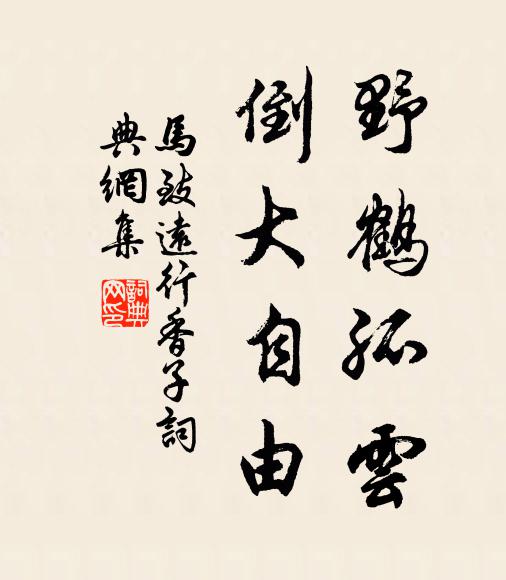 野鶴孤雲
倒大自由
馬致遠行香子詞
典網集
詞典
网印